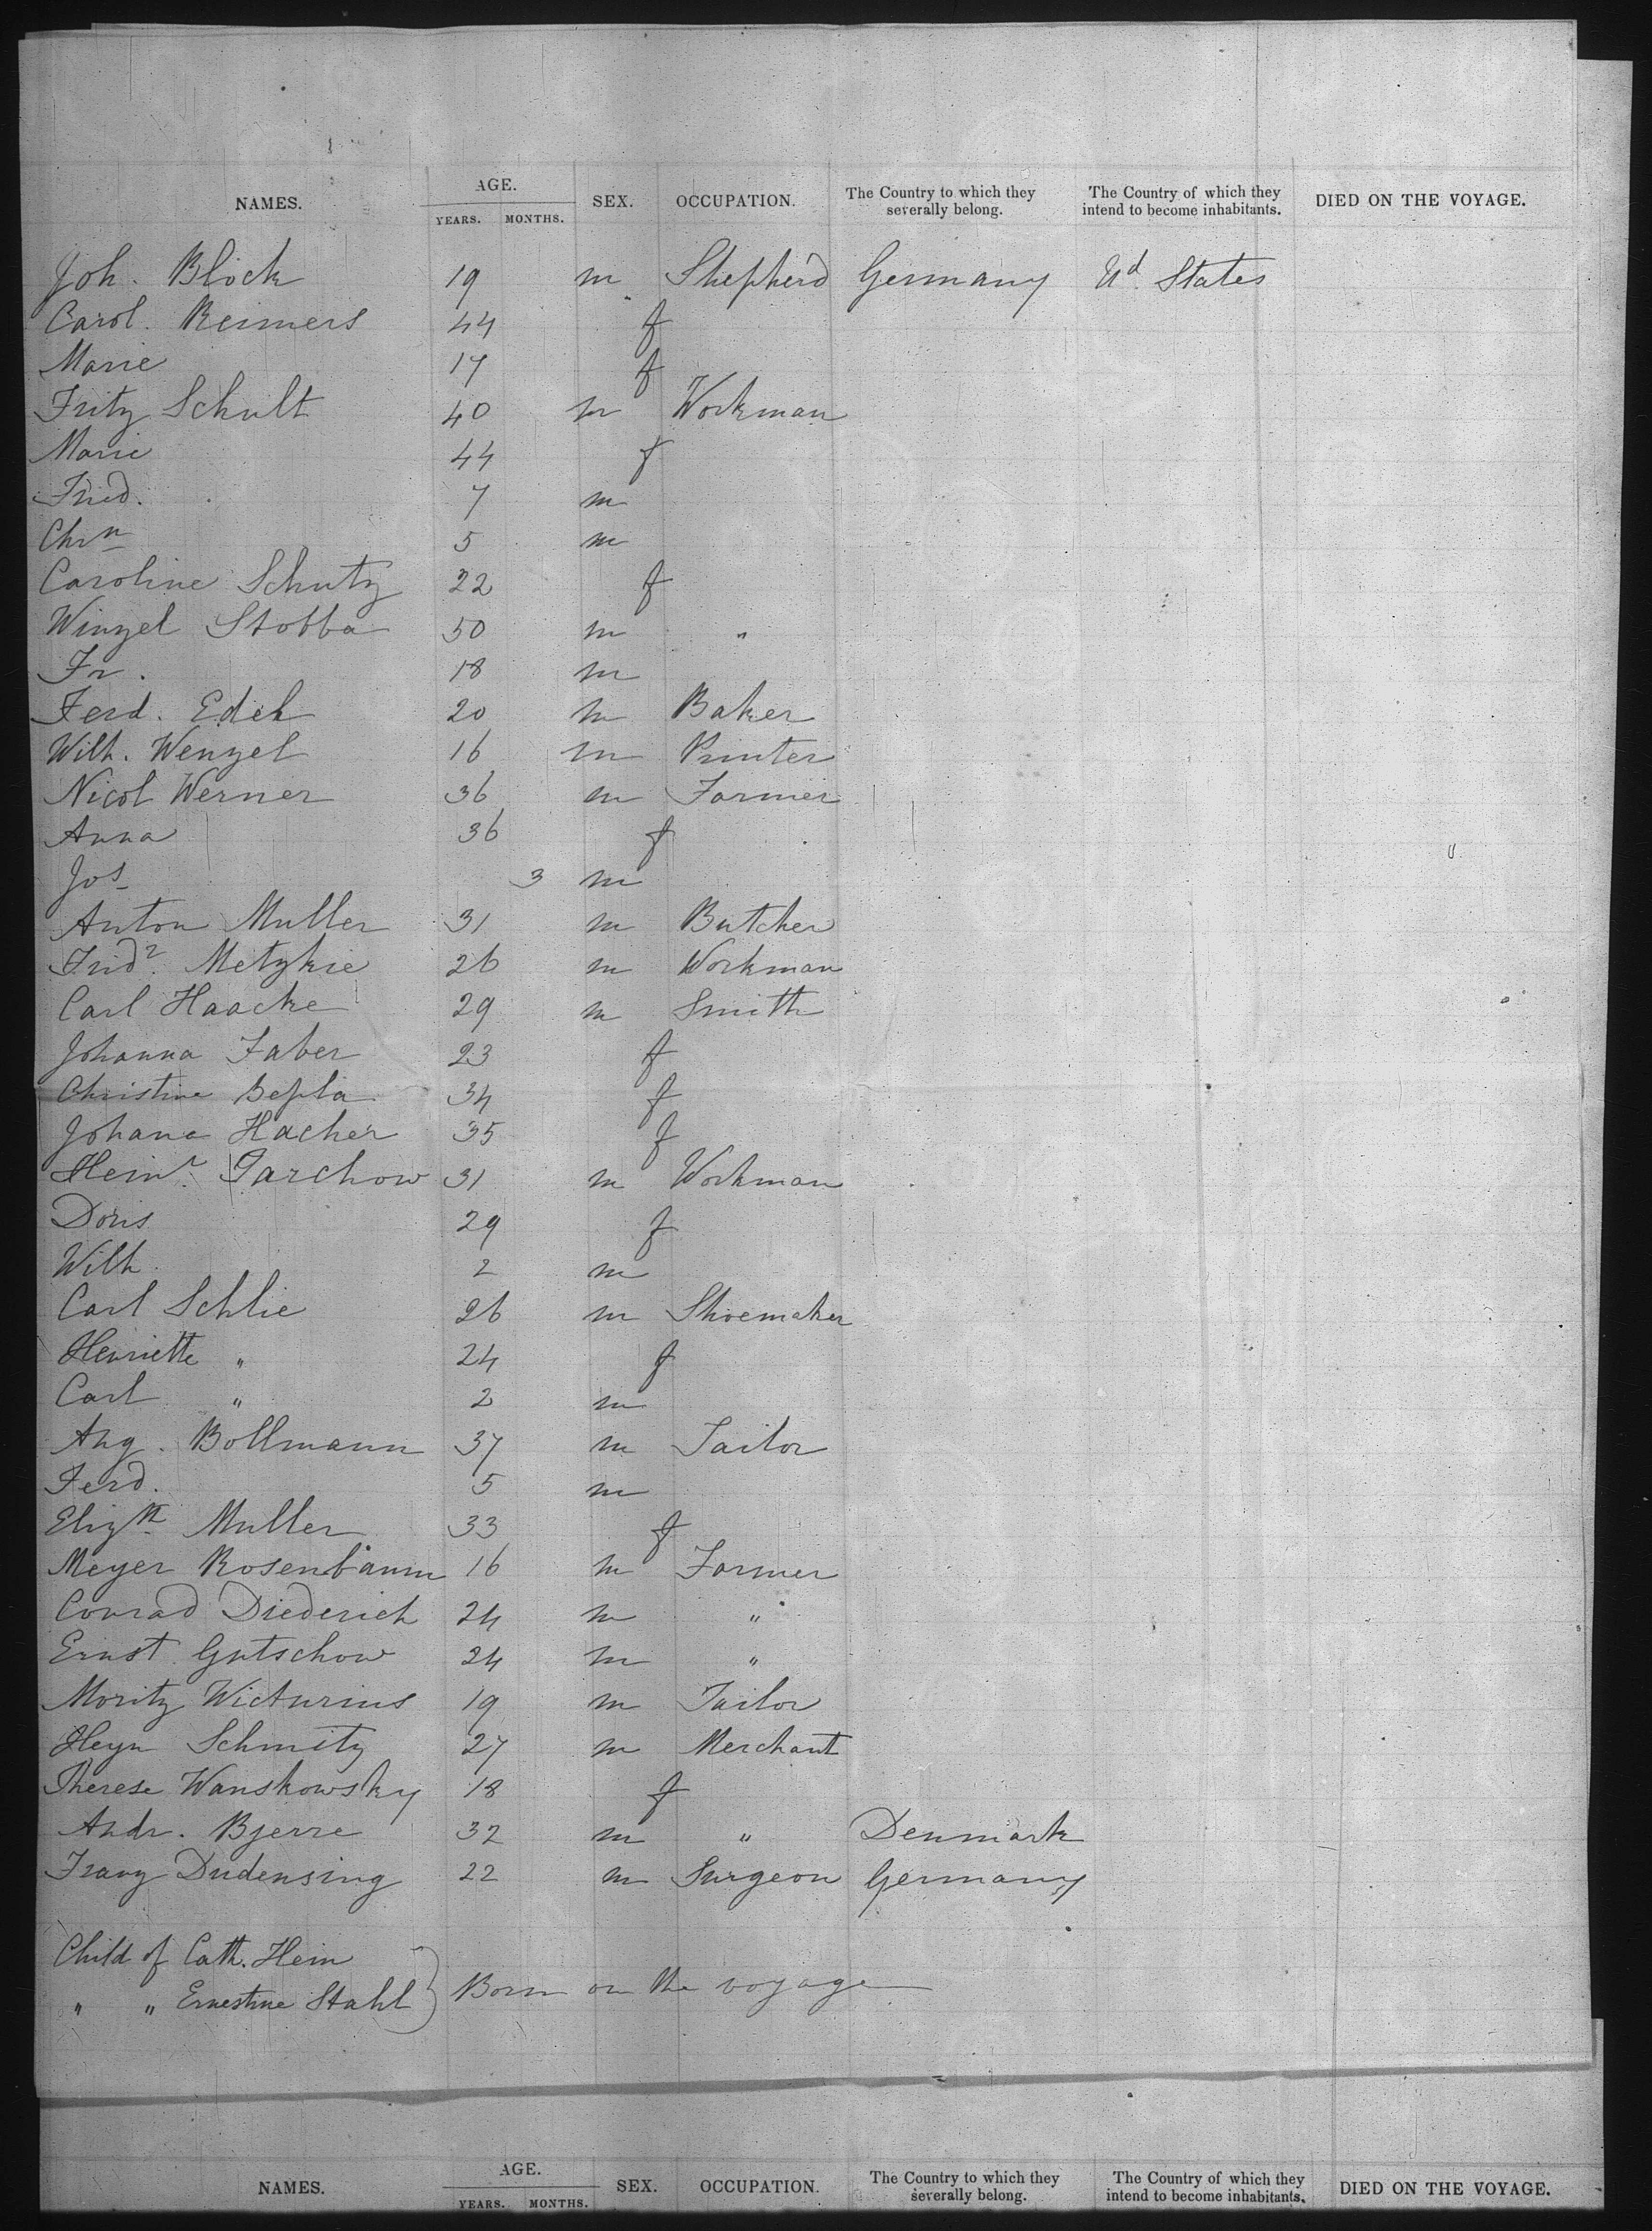 NAMES. AGE. YEARS. MONTHS. SEX. OCCUPATION. The Country to which they severally belong. The Country of which they intend to become inhabitants. DIED ON THE VOYAGE.
Joh. Block 19 m Shepherd Germany Ud. States
Carol. Reimers 44 f
Marie 17 f
Fritz Schult 40 m Workman
Marie 44 f
Fried. 7 m
Chrn 5 m
Caroline Schutz 22 f
Winzel Stobba 50 m "
Fr. 18 m
Ferd. Edeh 20 m Baker
Wilh. Wenzel 16 m Printer
Nicol Werner 36 m Farmer
Anna 36 f
Jos 3 m
Anton Muller 31 m Butcher
Fridr. Metzkie 26 m Workman
Carl Haacke 29 m Smith
Johanna Faber 23 f
Christine Bepla 34 f
Johana Hacher 35 f
Heinr. Garchow 31 m Workman
Doris 29 f
Wilh. 2 m
Carl Schlie 26 m Shoemaker
Henriette " 24 f
Carl " 2 m
Aug. Bollmann 37 m Tailor
Ferd. 5 m
Elizth Muller 33 f
Meyer Rosenbaum 16 m Farmer
Conrad Diederich 24 m "
Ernst Gutschow 24 m "
Moritz Wicturius 19 m Tailor
Heyn Schmitz 27 m Merchant
Therese Wanskowsky 18 f
Andr. Bjerre 32 m " Denmark
Franz Dudensing 22 m Surgeon Germany
Child of Cath. Hein
" " Ernestine Stahl } Born on the voyage
NAMES. AGE. YEARS. MONTHS. SEX. OCCUPATION. The Country to which they severally belong. The Country of which they intend to become inhabitants. DIED ON THE VOYAGE.